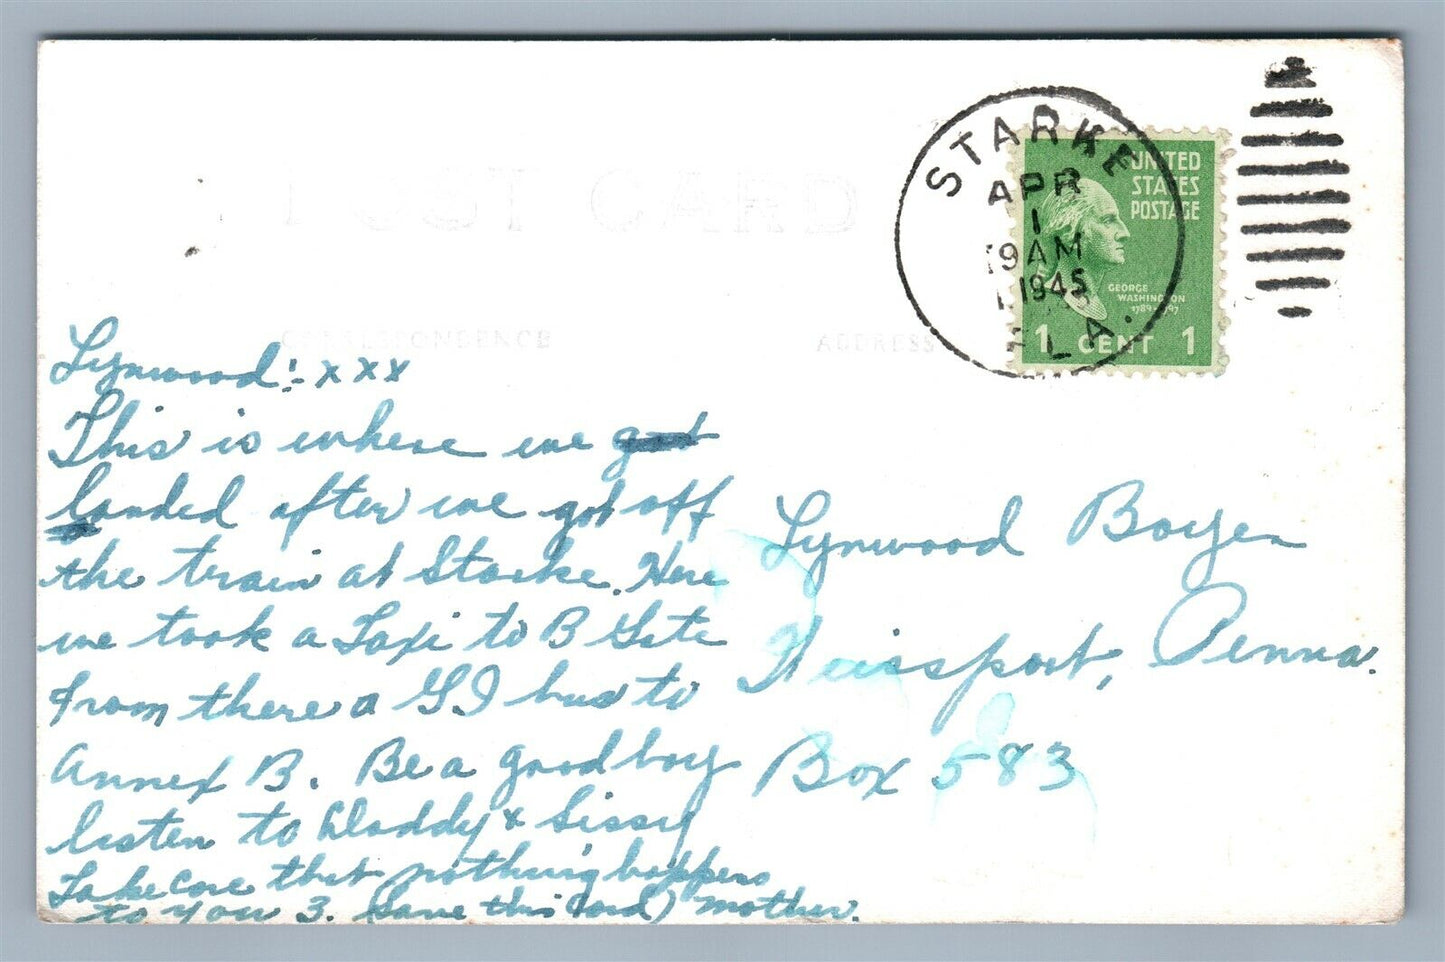 POST CARD
STARKE
APR
1
9 AM
1945
FLA.
UNITED
STATES
POSTAGE
GEORGE
WASHINGTON
1789-1797
1 CENT 1
CORRESPONDENCE
ADDRESS
Lynwood!- x x x
This is where we got
landed after we got off
the train at Starke. Here
we took a Taxi to B Gate
from there a GI bus to
Annex B. Be a good boy
listen to Daddy & Sissy
Take care that nothing happens
to you 3. (Save this Card) Mother.
Lynwood Boyer
Weissport, Penna.
Box 583